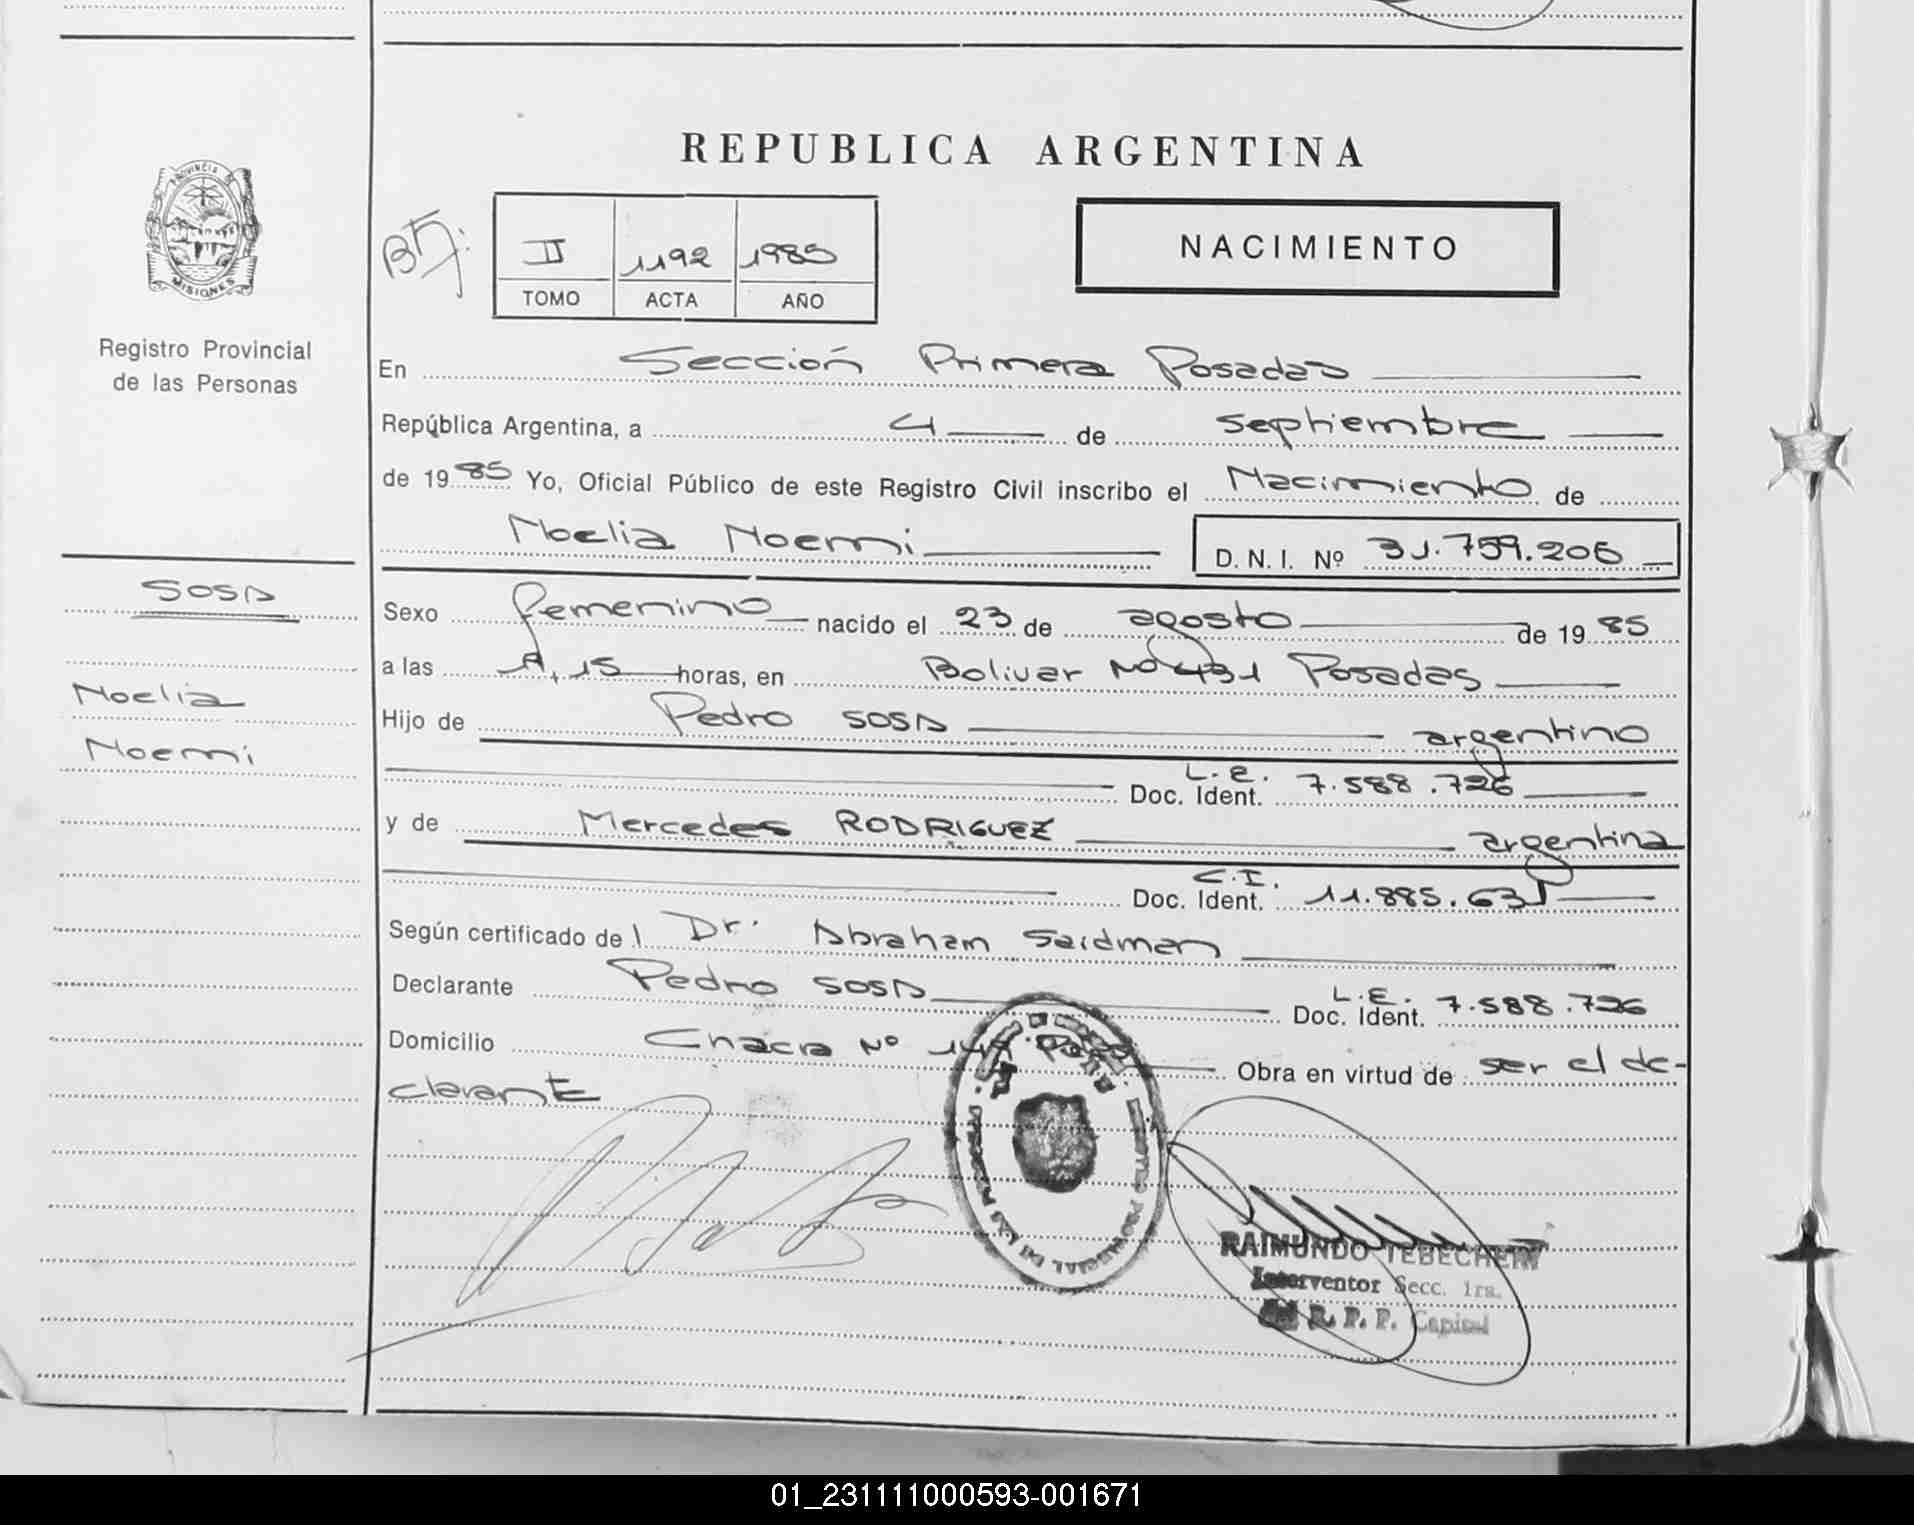 REPUBLICA ARGENTINA
PROVINCIA DE
MISIONES
Registro Provincial
de las Personas
II 1192 1985
TOMO ACTA AÑO
NACIMIENTO
En Sección Primera Posadas
República Argentina, a 4 de septiembre
de 1985 Yo, Oficial Público de este Registro Civil inscribo el Nacimiento de
Noelia Noemi D. N. I. Nº 31.759.206
SOSA
Noelia
Noemi
Sexo femenino nacido el 23 de agosto de 1985
a las 15 horas, en Bolivar Nº 431 Posadas
Hijo de Pedro SOSA argentino
L.E.
Doc. Ident. 7.588.726
y de Mercedes RODRIGUEZ argentina
C.I.
Doc. Ident. 11.885.631
Según certificado de Dr. Abraham Saidman
Declarante Pedro SOSA L.E. Doc. Ident. 7.588.726
Domicilio Chacra Nº Obra en virtud de ser el de-
clarante
REGISTRO PROVINCIAL DE LAS PERSONAS
RAIMUNDO TEBECHERY
Interventor Secc. 1ra.
R. P. P. Capital
01_231111000593-001671